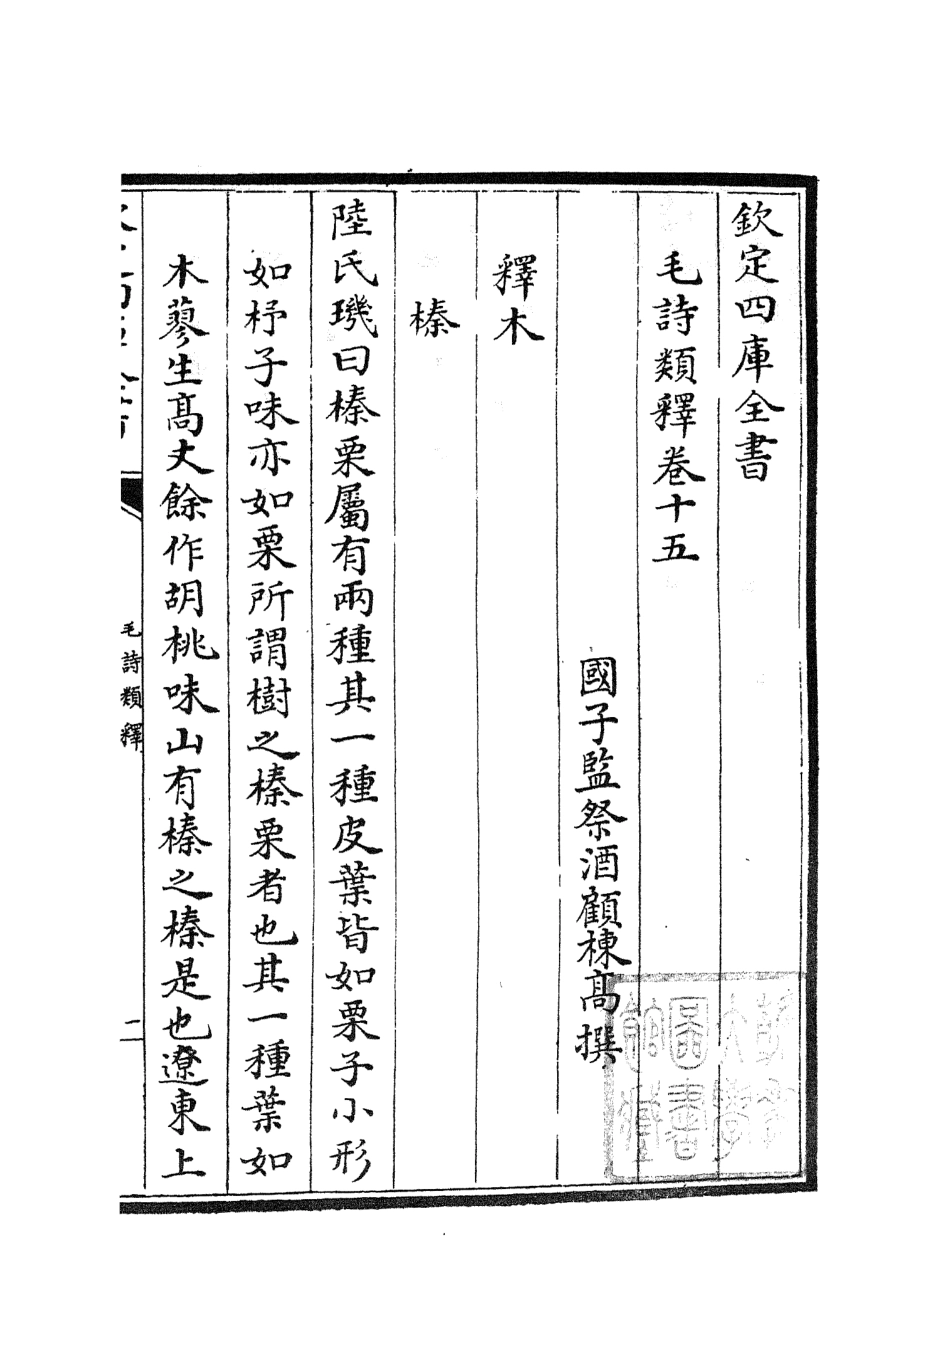 欽定四庫全書
毛詩類釋卷十五
國子監祭酒顧棟高撰
釋木
榛
陸氏璣曰榛栗屬有兩種其一種皮葉皆如栗子小形
如杼子味亦如栗所謂樹之榛栗者也其一種葉如
木蓼生高丈餘作胡桃味山有榛之榛是也遼東上
毛詩類釋
二